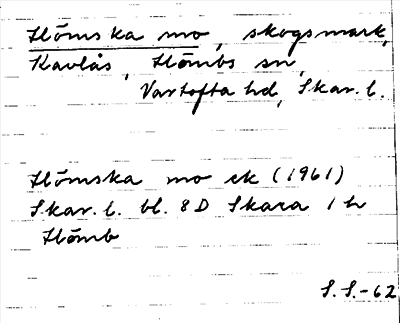 Hömska mo, skogsmark,
Kavlås, Hömbs sn,
Vartofta hd, Skar. l.
Hömska mo ek (1961)
Skar. l. bl. 8D Skara 1h
Hömb
S.S.-62